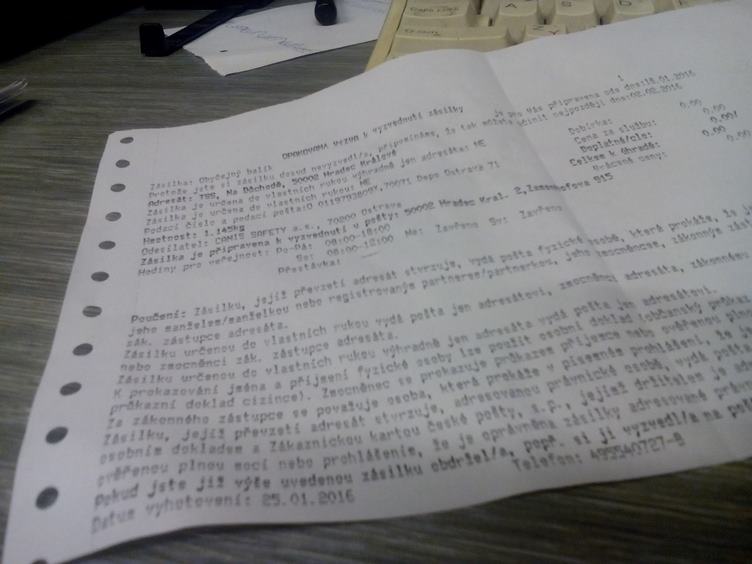 1
OPAKOVANÁ Výzva k vyzvednutí zásilky
je pro Vás připravena ode dne:18.01.2016
Zásilka: Obyčejný balík
Protože jste si zásilku dosud nevyzvedl/a, připomínáme, že tak můžete učinit nejpozději dne:02.02.2016
Adresát: TSS, Na Důchodě, 50002 Hradec Králové
Dobírka: 0,00
Zásilka je určena do vlastních rukou výhradně jen adresáta: NE
Cena za službu: 0,00
Zásilka je určena do vlastních rukou: NE
Doplatné/clo: 0.00/
Podací číslo a podací pošta: 70071 Depo Ostrava 71
Celkem k úhradě: 0.00/
Hmotnost: 1.145kg
ceny:
Odesílatel: CANIS SAFETY a.s., 70200 Ostrava
Zásilka je připravena k vyzvednutí v poště: 50002 Hradec Král. 2, 915
Hodiny pro veřejnost: Po-Pá: 08:00-18:00 Ne: Zavřeno Sv: Zavřeno
So: 08:00-12:00
Přestávka:
Poučení: Zásilku, jejíž převzetí adresát stvrzuje, vydá pošta fyzické osobě, která prokáže, že je
jeho manželem/manželkou nebo registrovaným partnerem/partnerkou, jeho zmocněncem, zákonným
zák. zástupce adresáta.
Zásilku určenou do vlastních rukou vydá pošta jen adresátovi, zmocněnci adresáta, zákonnému
nebo zmocněnci zák. zástupce adresáta.
Zásilku určenou do vlastních rukou výhradně jen adresáta vydá pošta jen adresátovi.
K prokazování jména a příjmení fyzické osoby lze použít osobní doklad (občanský průkaz
průkazní doklad cizince). Zmocněnec se prokazuje průkazem příjemce nebo ověřenou
Za zákonného zástupce se považuje osoba, která prokáže v písemném prohlášení, že je
Zásilku, jejíž převzetí adresát stvrzuje, adresovanou právnické osobě, vydá pošta
osobním dokladem a Zákaznickou kartou České pošty, s.p., jejímž držitelem je
ověřenou plnou mocí nebo prohlášením, že je oprávněna zásilky adresované
Pokud jste již výše uvedenou zásilku obdržel/a, popř. si ji vyzvedl/a na
Datum vyhotovení: 25.01.2016
Telefon: 495540727-8